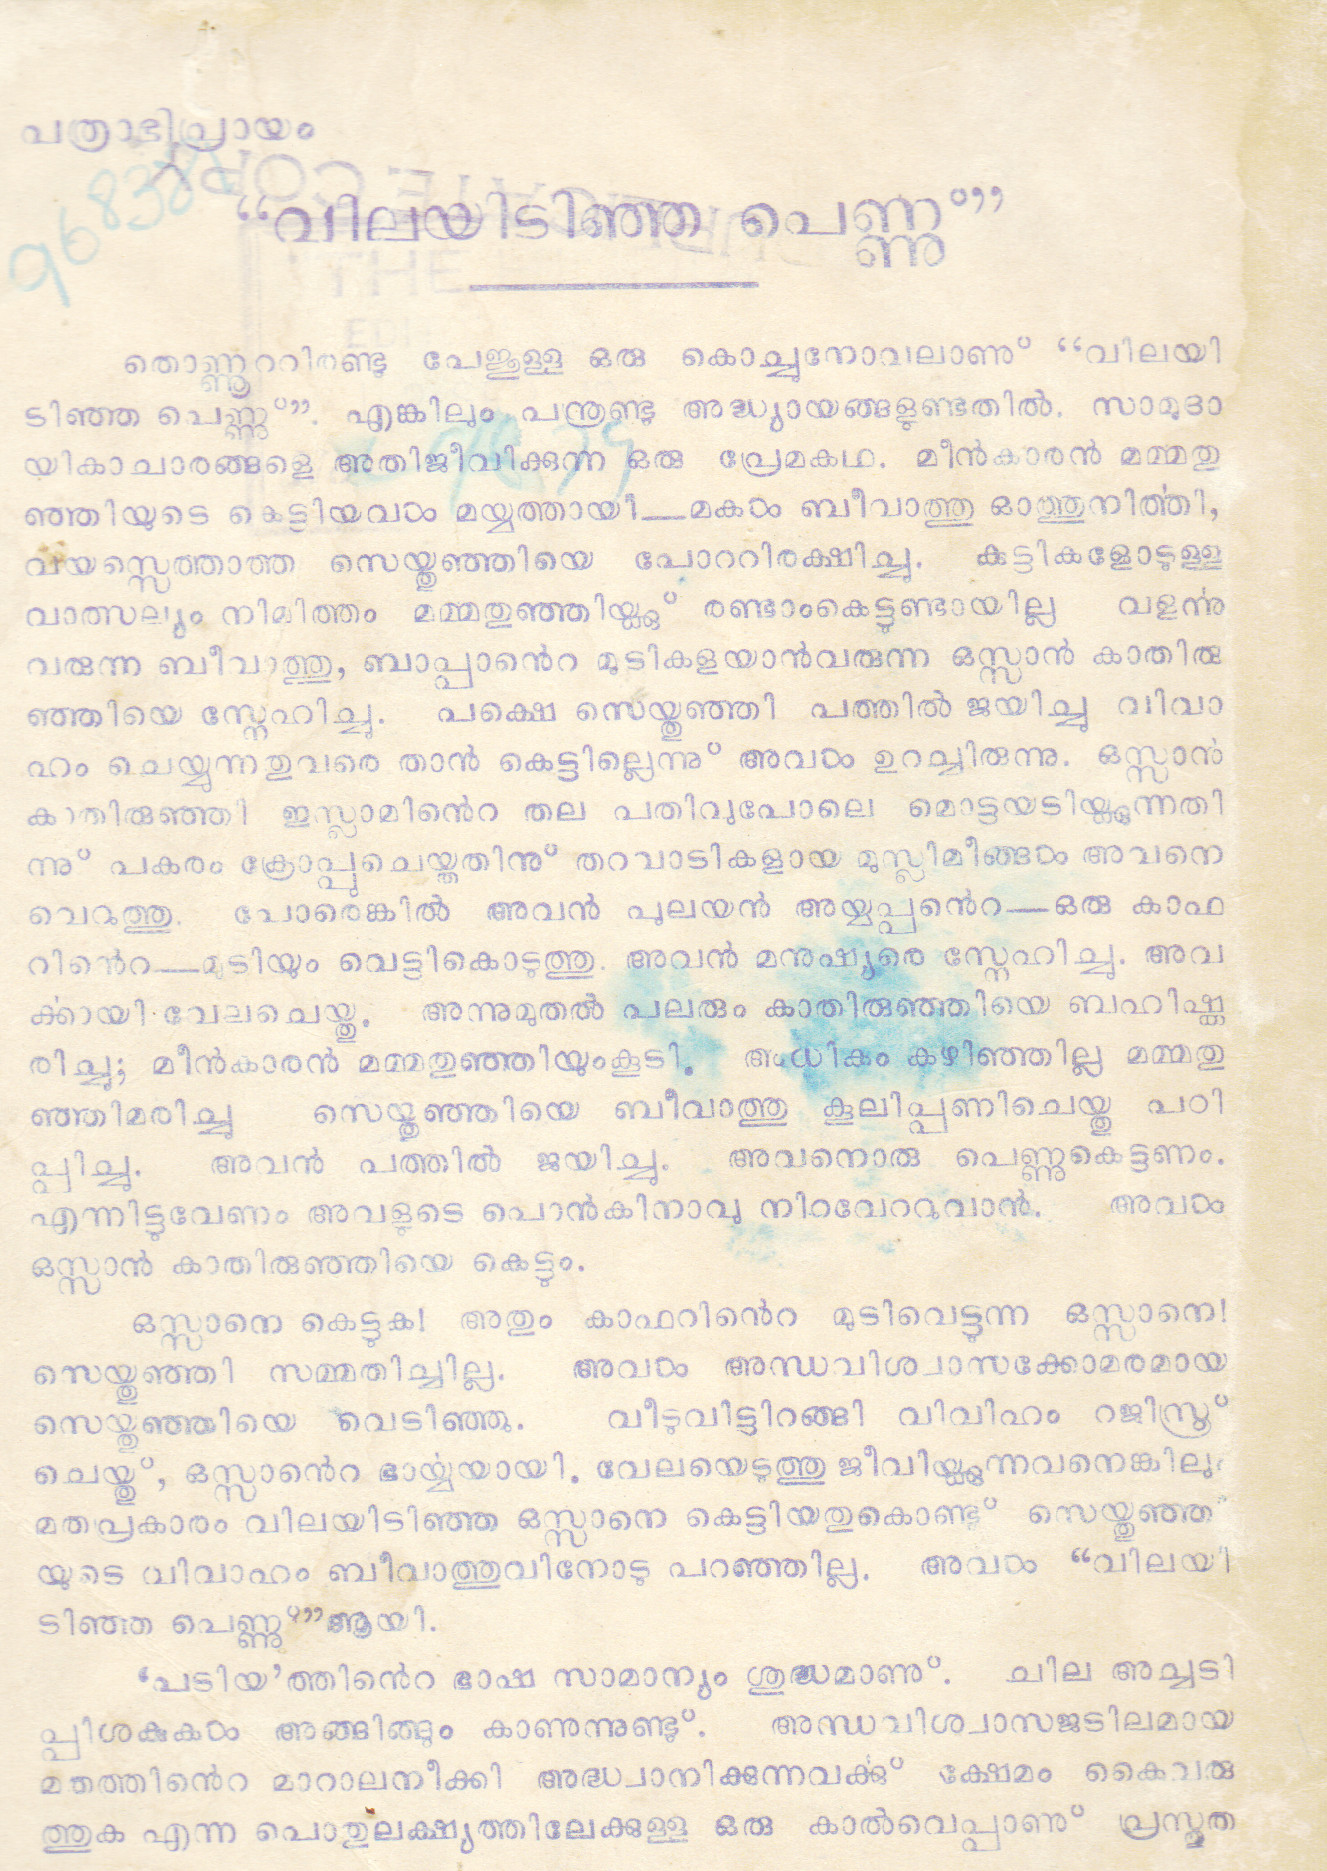 പത്രാഭിപ്രായം
968382
“വിലയിടിഞ്ഞ പെണ്ണു്”
THE
തൊണ്ണൂററിരണ്ടു പേജുള്ള ഒരു കൊച്ചുനോവലാണു് “വിലയി
ടിഞ്ഞ പെണ്ണു്”. എങ്കിലും പന്ത്രണ്ടു അദ്ധ്യായങ്ങളുണ്ടതിൽ. സാമുദാ
യികാചാരങ്ങളെ അതിജീവിക്കുന്ന ഒരു പ്രേമകഥ. മീൻകാരൻ മമ്മതു
ഞ്ഞിയുടെ കെട്ടിയവൾ മയ്യത്തായി—മകൾ ബീവാത്തു ഓത്തുനിർത്തി,
വയസ്സെത്താത്ത സെയ്തുഞ്ഞിയെ പോററിരക്ഷിച്ചു. കുട്ടികളോടുള്ള
വാത്സല്യം നിമിത്തം മമ്മതുഞ്ഞിയ്ക്കു് രണ്ടാംകെട്ടുണ്ടായില്ല വളർന്നു
വരുന്ന ബീവാത്തു, ബാപ്പാൻെറ മുടികളയാൻവരുന്ന ഒസ്സാൻ കാതിരു
ഞ്ഞിയെ സ്നേഹിച്ചു. പക്ഷെ സെയ്തുഞ്ഞി പത്തിൽ ജയിച്ചു വിവാ
ഹം ചെയ്യുന്നതുവരെ താൻ കെട്ടില്ലെന്നു് അവൾ ഉറച്ചിരുന്നു. ഒസ്സാൻ
കാതിരുഞ്ഞി ഇസ്ലാമിൻെറ തല പതിവുപോലെ മൊട്ടയടിയ്ക്കുന്നതി
ന്നു് പകരം ക്രോപ്പുചെയ്തതിനു് തറവാടികളായ മുസ്ലിമീങ്ങൾ അവനെ
വെറുത്തു. പോരെങ്കിൽ അവൻ പുലയൻ അയ്യപ്പൻെറ—ഒരു കാഫ
റിൻെറ—മുടിയും വെട്ടികൊടുത്തു. അവൻ മനുഷ്യരെ സ്നേഹിച്ചു. അവ
ർക്കായി വേലചെയ്തു. അന്നുമുതൽ പലരും കാതിരുഞ്ഞിയെ ബഹിഷ്ക്ക
രിച്ചു; മീൻകാരൻ മമ്മതുഞ്ഞിയുംകൂടി. അധികം കഴിഞ്ഞില്ല മമ്മതു
ഞ്ഞിമരിച്ചു സെയ്തുഞ്ഞിയെ ബീവാത്തു കൂലിപ്പണിചെയ്തു പഠി
പ്പിച്ചു. അവൻ പത്തിൽ ജയിച്ചു. അവനൊരു പെണ്ണുകെട്ടണം.
എന്നിട്ടുവേണം അവളുടെ പൊൻകിനാവു നിറവേററുവാൻ. അവൾ
ഒസ്സാൻ കാതിരുഞ്ഞിയെ കെട്ടും.
ഒസ്സാനെ കെട്ടുക! അതും കാഫറിൻെറ മുടിവെട്ടുന്ന ഒസ്സാനെ!
സെയ്തുഞ്ഞി സമ്മതിച്ചില്ല. അവൾ അന്ധവിശ്വാസക്കോമരമായ
സെയ്തുഞ്ഞിയെ വെടിഞ്ഞു. വീടുവിട്ടിറങ്ങി വിവിഹം റജിസ്ത്ര്
ചെയ്തു്, ഒസ്സാൻെറ ഭാര്യയായി. വേലയെടുത്തു ജീവിയ്ക്കുന്നവനെങ്കിലും
മതപ്രകാരം വിലയിടിഞ്ഞ ഒസ്സാനെ കെട്ടിയതുകൊണ്ടു് സെയ്തുഞ്ഞി
യുടെ വിവാഹം ബീവാത്തുവിനോടു പറഞ്ഞില്ല. അവൾ “വിലയി
ടിഞ്ഞ പെണ്ണു്”ആയി.
‘പടിയ’ത്തിൻെറ ഭാഷ സാമാന്യം ശുദ്ധമാണു്. ചില അച്ചടി
പ്പിശകുകൾ അങ്ങിങ്ങും കാണുന്നുണ്ടു്. അന്ധവിശ്വാസജടിലമായ
മതത്തിൻെറ മാറാലനീക്കി അദ്ധ്വാനിക്കുന്നവർക്കു് ക്ഷേമം കൈവരു
ത്തുക എന്ന പൊതുലക്ഷ്യത്തിലേക്കുള്ള ഒരു കാൽവെപ്പാണു് പ്രസ്തുത